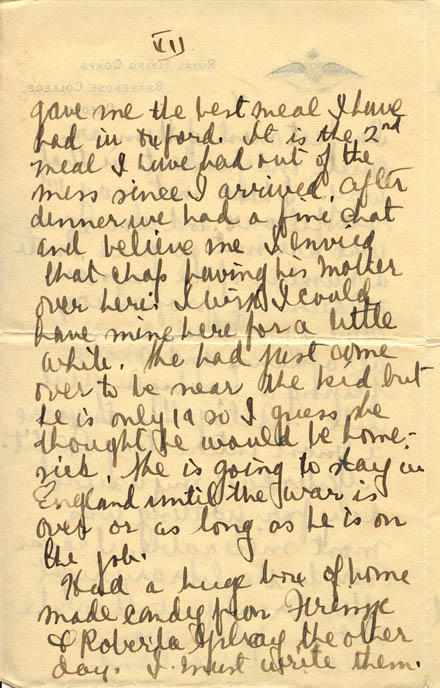 VII
ROYAL FLYING CORPS
BRASENOSE COLLEGE,
gave me the best meal I have
had in Oxford. It is the 2nd
meal I have had out of the
mess since I arrived. After
dinner we had a fine chat
and believe me I envied
that chap having his mother
over here. I wish I could
have mine here for a little
while. She had just come
over to be near the kid but
he is only 19 so I guess she
thought he would be home-
sick. She is going to stay in
England until the war is
over or as long as he is on
the job.
Had a huge box of home
made candy from
& Roberta Gilray the other
day. I must write them.